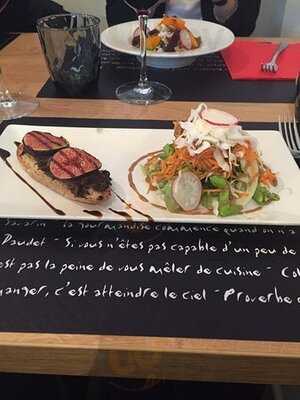 Savarin - La gourmandise commence quand on n'a
Daudet - Si vous n'êtes pas capable d'un peu de
est pas la peine de vous mêler de cuisine - Col
manger, c'est atteindre le ciel - Proverbe